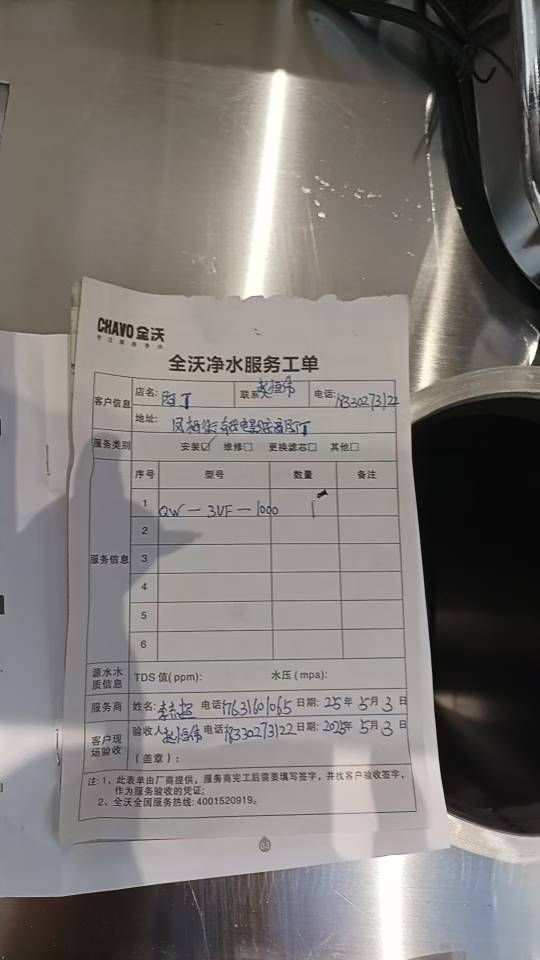 CHAVO 全沃
专注商用净水
全沃净水服务工单
客户信息 店名: 阿丁 联系 赵恒伟 电话: 18330273122
地址:
服务类别 安装☑ 维修□ 更换滤芯□ 其他□
序号 型号 数量 备注
服务信息
1 QW-3UF-1000 1
2
3
4
5
6
源水水质信息 TDS 值(ppm): 水压(mpa):
服务商 姓名: 电话 17631601065 日期: 25年 5月 3 日
客户现场验收 验收人 赵恒伟 电话 18330273122 日期: 2025年 5月 3 日
(盖章):
注: 1、此表单由厂商提供，服务商完工后需要填写签字，并找客户验收签字，
作为服务验收的凭证;
2、全沃全国服务热线: 4001520919。
03